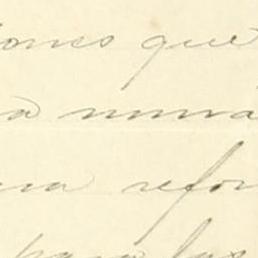 ones que
a nueva
una refor
para las